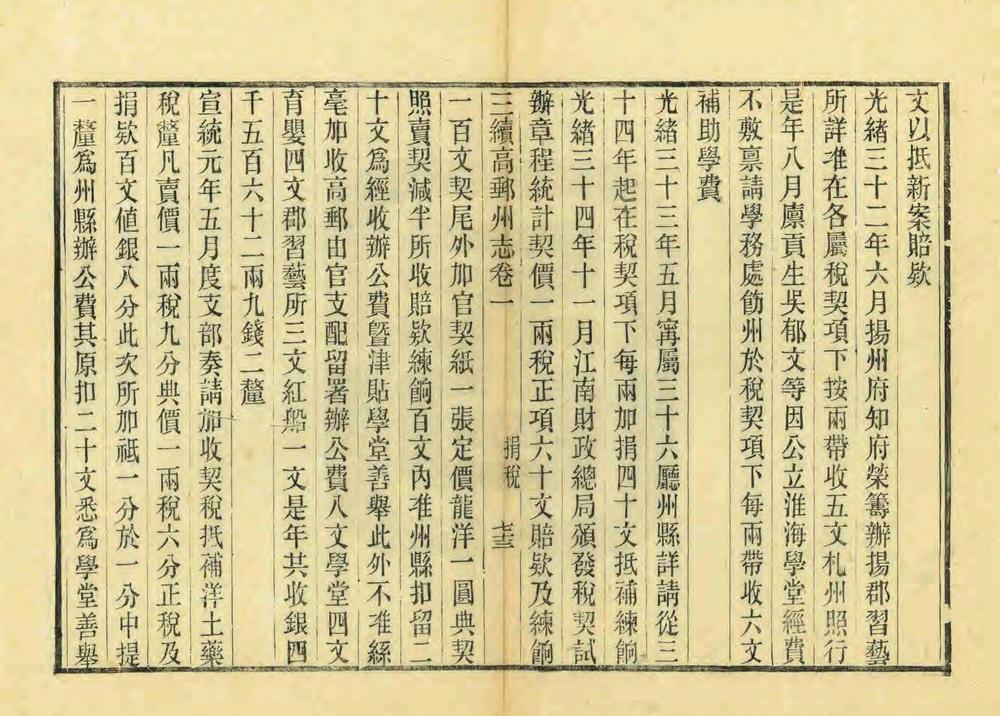 文以抵新案賠欵
光緒三十二年六月揚州府知府榮籌辦揚郡習藝
所詳准在各屬稅契項下按兩帶收五文札州照行
是年八月廪貢生吳郁文等因公立淮海學堂經費
不敷禀請學務處飭州於稅契項下每兩帶收六文
補助學費
光緒三十三年五月寗屬三十六廳州縣詳請從三
十四年起在稅契項下每兩加捐四十文抵補練餉
光緒三十四年十一月江南財政總局頒發稅契試
辦章程統計契價一兩稅正項六十文賠欵及練餉
三續高郵州志卷一 捐稅 七十三
一百文契尾外加官契紙一張定價龍洋一圓典契
照賣契減半所收賠欵練餉百文內准州縣扣留二
十文爲經收辦公費曁津貼學堂善舉此外不准絲
毫加收高郵由官支配留署辦公費八文學堂四文
育嬰四文郡習藝所三文紅船一文是年其收銀四
千五百六十二兩九錢二釐
宣統元年五月度支部奏請加收契稅抵補洋土藥
稅釐凡賣價一兩稅九分典價一兩稅六分正稅及
捐欵百文値銀八分此次所加祗一分於一分中提
一釐爲州縣辦公費其原扣二十文悉爲學堂善舉